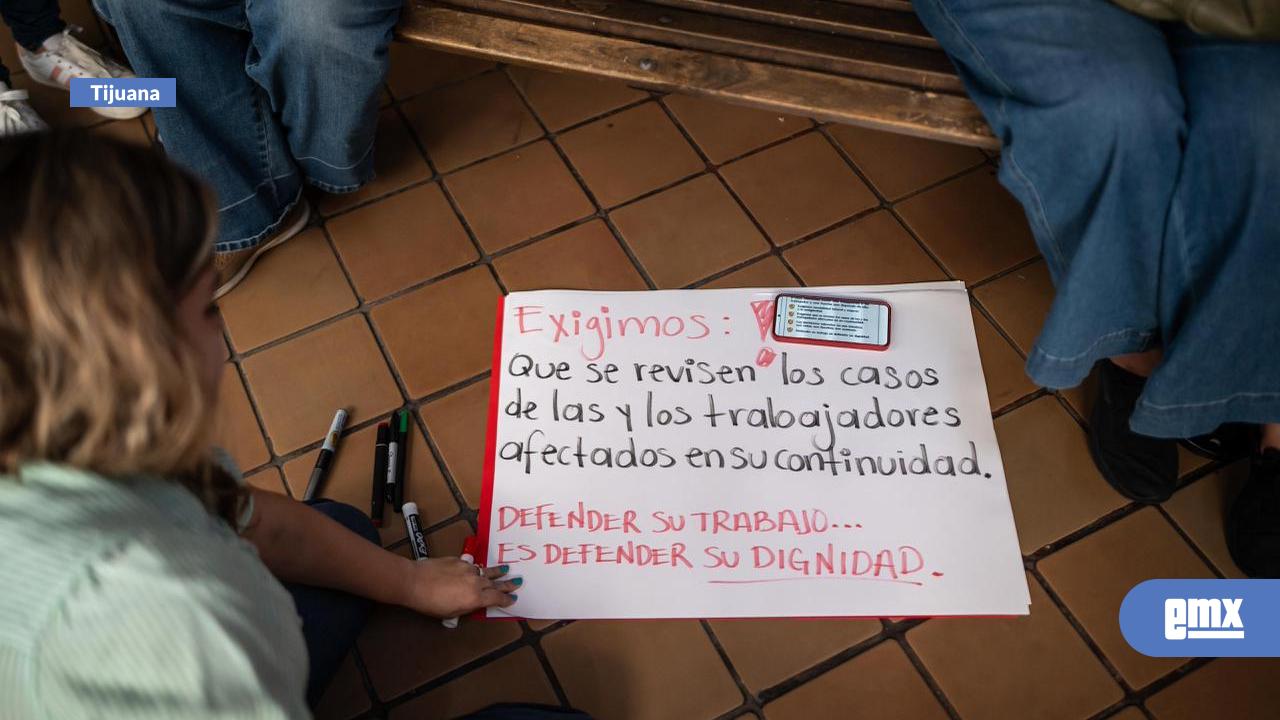 Tijuana
Exigimos: !
Que se revisen los casos
de las y los trabajadores
afectados en su continuidad.
DEFENDER SU TRABAJO...
ES DEFENDER SU DIGNIDAD.
emx